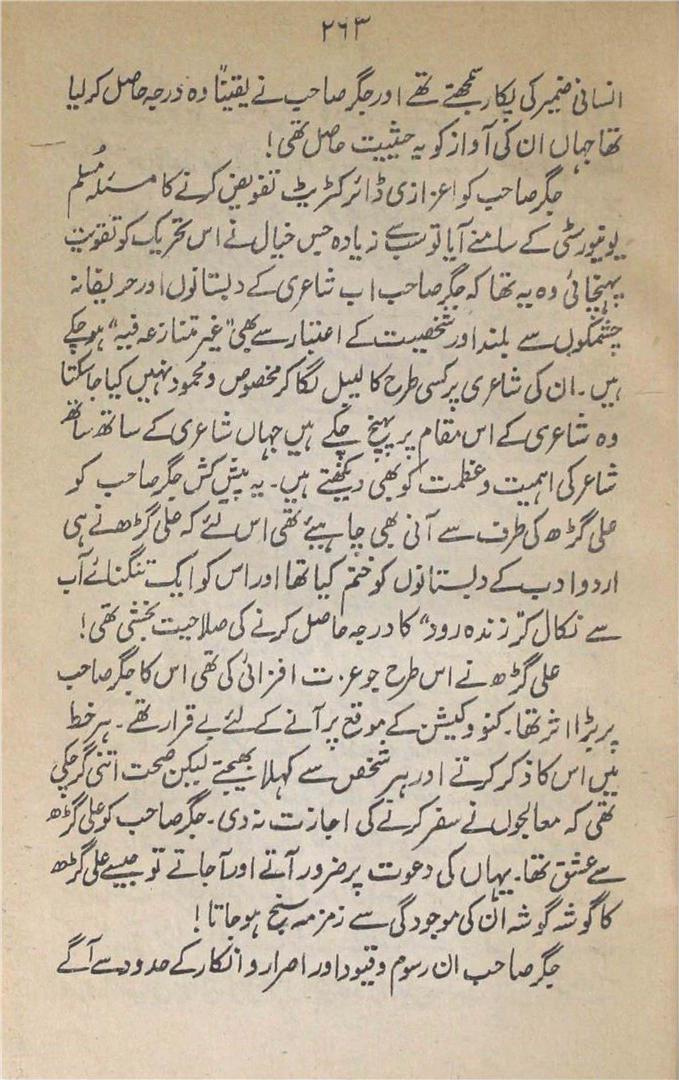 ۲۶۳
انسانی ضمیر کی پکار سمجھتے تھے اور جگر صاحب نے یقیناً وہ درجہ حاصل کر لیا
تھا جہاں ان کی آواز کو یہ حیثیت حاصل تھی!
جگر صاحب کو اعزازی ڈائرکٹریٹ تفویض کرنے کا مسئلہ مُسلم
یونیورسٹی کے سامنے آیا تو سب سے زیادہ جس خیال نے اس تحریک کو تقویت
پہنچائی وہ یہ تھا کہ جگر صاحب اب شاعری کے دبستانوں اور حریفانہ
چشمکوں سے بلند اور شخصیت کے اعتبار سے بھی "غیر متنازعہ فیہ" ہو چکے
ہیں۔ ان کی شاعری پر کسی طرح کا لیبل لگا کر مخصوص و محمود نہیں کیا جا سکتا
وہ شاعری کے اس مقام پر پہنچ چکے ہیں جہاں شاعری کے ساتھ ساتھ
شاعر کی اہمیت و عظمت کو بھی دیکھتے ہیں۔ یہ پیش کش جگر صاحب کو
علی گڑھ کی طرف سے آنی بھی چاہیئے تھی اس لئے کہ علی گڑھ نے ہی
اردو ادب کے دبستانوں کو ختم کیا تھا اور اس کو ایک تنگنائے آب
سے نکال کر "زندہ رود" کا درجہ حاصل کرنے کی صلاحیت بخشی تھی!
علی گڑھ نے اس طرح جو عزت افزائی کی تھی اس کا جگر صاحب
پر بڑا اثر تھا۔ کنووکیشن کے موقع پر آنے کے لئے بے قرار تھے۔ ہر خط
میں اس کا ذکر کرتے اور ہر شخص سے کہلا بھیجتے لیکن صحت اتنی گر چکی
تھی کہ معالجوں نے سفر کرنے کی اجازت نہ دی۔ جگر صاحب کو علی گڑھ
سے عشق تھا۔ یہاں کی دعوت پر ضرور آتے اور آ جاتے تو جیسے علی گڑھ
کا گوشہ گوشہ ان کی موجودگی سے زمزمہ سنج ہو جاتا!
جگر صاحب ان رسوم و قیود اور اصرار و انکار کے حدود سے آگے